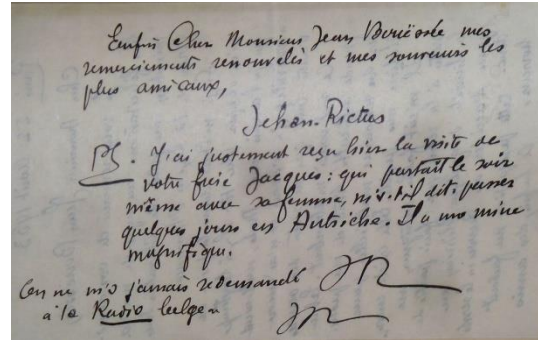 Enfin Cher Monsieur Jean Bouëssde mes
remerciements renouvelés et mes souvenirs les
plus amicaux,
Jehan-Rictus
PS. J'ai justement reçu hier la visite de
votre frère Jacques: qui partait le soir
même avec sa femme, m'a-t-il dit, passer
quelques jours en Autriche. Il a une mine
magnifique.
On ne m'a jamais redemandé JR
à la Radio belge JR